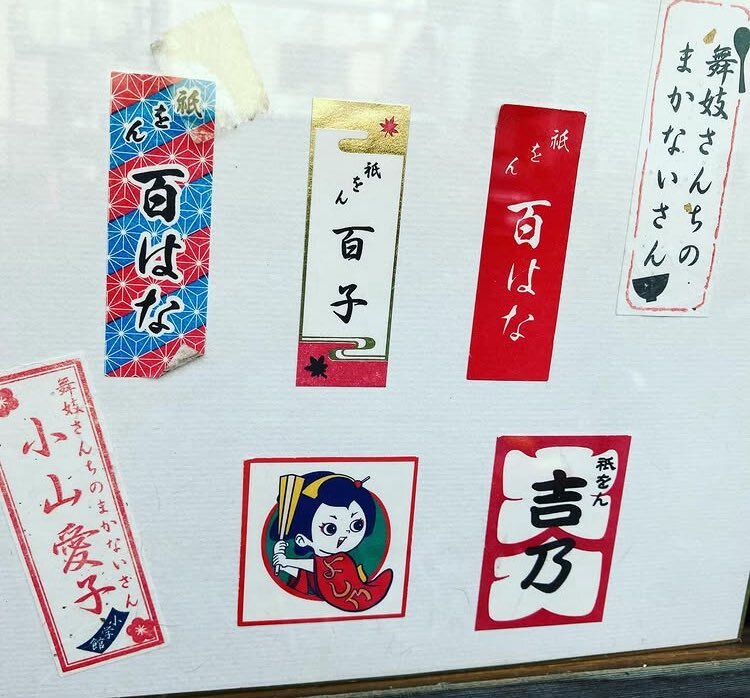 祇をん
百はな
祇をん
百子
祇をん
百はな
舞妓さんちの
まかないさん
舞妓さんちのまかないさん
小山愛子
小学館
よし乃
祇をん
吉乃